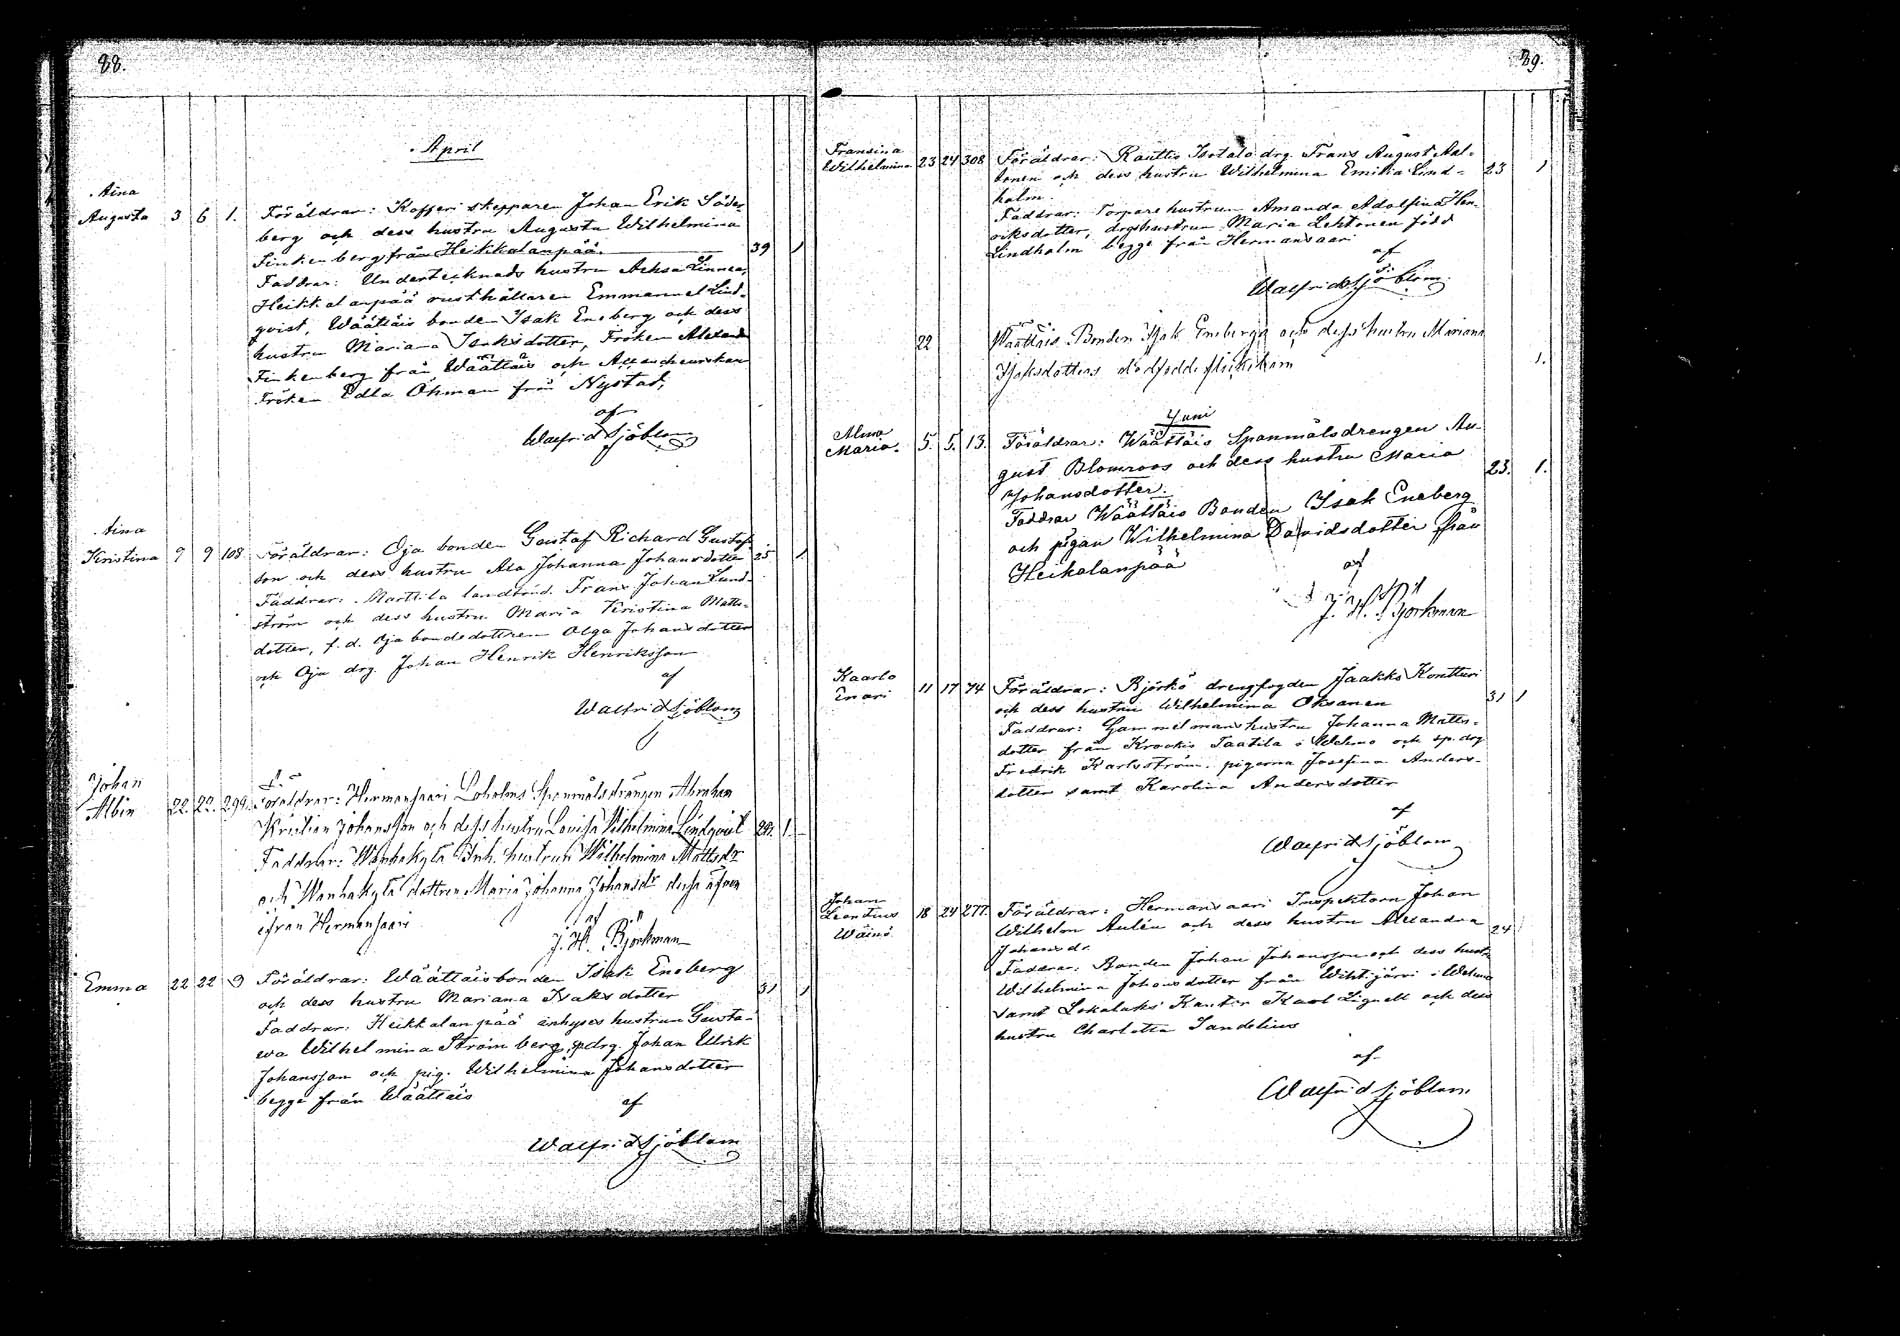 88.
April
Aina
Augusta 3 6 1. Föräldrar: Kofferi skepparen Johan Erik Söder-
berg och dess hustru Augusta Wilhelmina
Finkenberg från Heikkalanpää. 39 1
Faddrar: Undertecknads hustru Achsa Linnea,
Heikkalanpää rusthållaren Emmanuel Lind-
qvist, Wäättäis bonden Isak Eneberg och dess
hustru Mariana Isaksdotter, Fröken Alexand
Finkenberg från Wäättäis och
Fröken Edla Öhman från Nystad,
af
Walfrid Sjöblom
Aina
Kristina 9 9 108 Föräldrar: Oja bonden Gustaf Richard Gustafs
son och dess hustru Ada Johanna Johansdotter 25 1
Faddrar: Marttila landbond. Frans Johan Lund-
ström och dess hustru Maria Kristina Matts-
dotter, f.d. Oja bondedottren Olga Johansdotter
och Oja drg. Johan Henrik Henriksson
af
Walfrid Sjöblom
Johan
Albin 22. 22. 299. Föräldrar: Hermansaari Loholms Spanmålsdrängen Abraham
Kristian Johansson och dess hustru Lovisa Wilhelmina Lindqvist 29. 1
Faddrar: Wanhakylä Inh. hustrun Wilhelmina Mattsdr
och Wanhakylä dottren Maria Johanna Johansdr dessa äfven
ifrån Hermansaari
af
J. H. Björkman
Emma 22 22 9 Föräldrar: Wäättäis bonden Isak Eneberg
och dess hustru Mariana Isaksdotter 31 1
Faddrar: Heikkalanpää inhyses hustrun Gusta-
eva Wilhelmina Strömberg, spdrg. Johan Ulrik
Johansson och pig. Wilhelmina Johansdotter
begge från Wäättäis
af
Walfrid Sjöblom
89.
Fransina
Wilhelmina 23 24 308 Föräldrar: Rauttis Isotalo drg. Frans August Aal-
tonen och dess hustru Wilhelmina Emilia Lind- 23 1
holm.
Faddrar: Torpare hustrun Amanda Adolfina Hen-
riksdotter, drgshustrun Maria Lehtonen född
Lindholm begge från Hermansaari
af
Walfrid Sjöblom.
22 Wäättäis Bonden Isak Enebergs och dess hustru Mariana
Isaksdotters dödfödde flickebarn 1.
Juni
Alma
Maria. 5. 5. 13. Föräldrar: Wäättäis Spanmålsdrengen Au-
gust Blomroos och dess hustru Maria 23. 1.
Johansdotter.
Faddrar Wäättäis Bonden Isak Eneberg
och pigan Wilhelmina Davidsdotter från
Heikalanpää
af
J. H. Björkman
Kaarlo
Enari 11 17 74 Föräldrar: Björkö drengfogden Jaakko Kontturi
och dess hustru Wilhelmina Oksanen 31 1
Faddrar: Gammelmanshustru Johanna Matts-
dotter från Krookis Taatila i Wehmo och sp. drg
Fredrik Karlsström. pigorna Josefina Anders-
dotter samt Karolina Andersdotter
af
Walfrid Sjöblom
Johan
Leontius
Wäinö 18 24 277. Föräldrar: Hermansaari Inspektorn Johan
Wilhelm Aulén och dess hustru Alexandra 24
Johansdr.
Faddrar: Bonden Johan Johansson och dess hustr.
Wilhelmina Johansdotter från Wihtijärvi i Wehmo
samt Lokalaks Kantor Karl Lignell och dess
hustru Charlotta Sandelius
af
Walfrid Sjöblom.